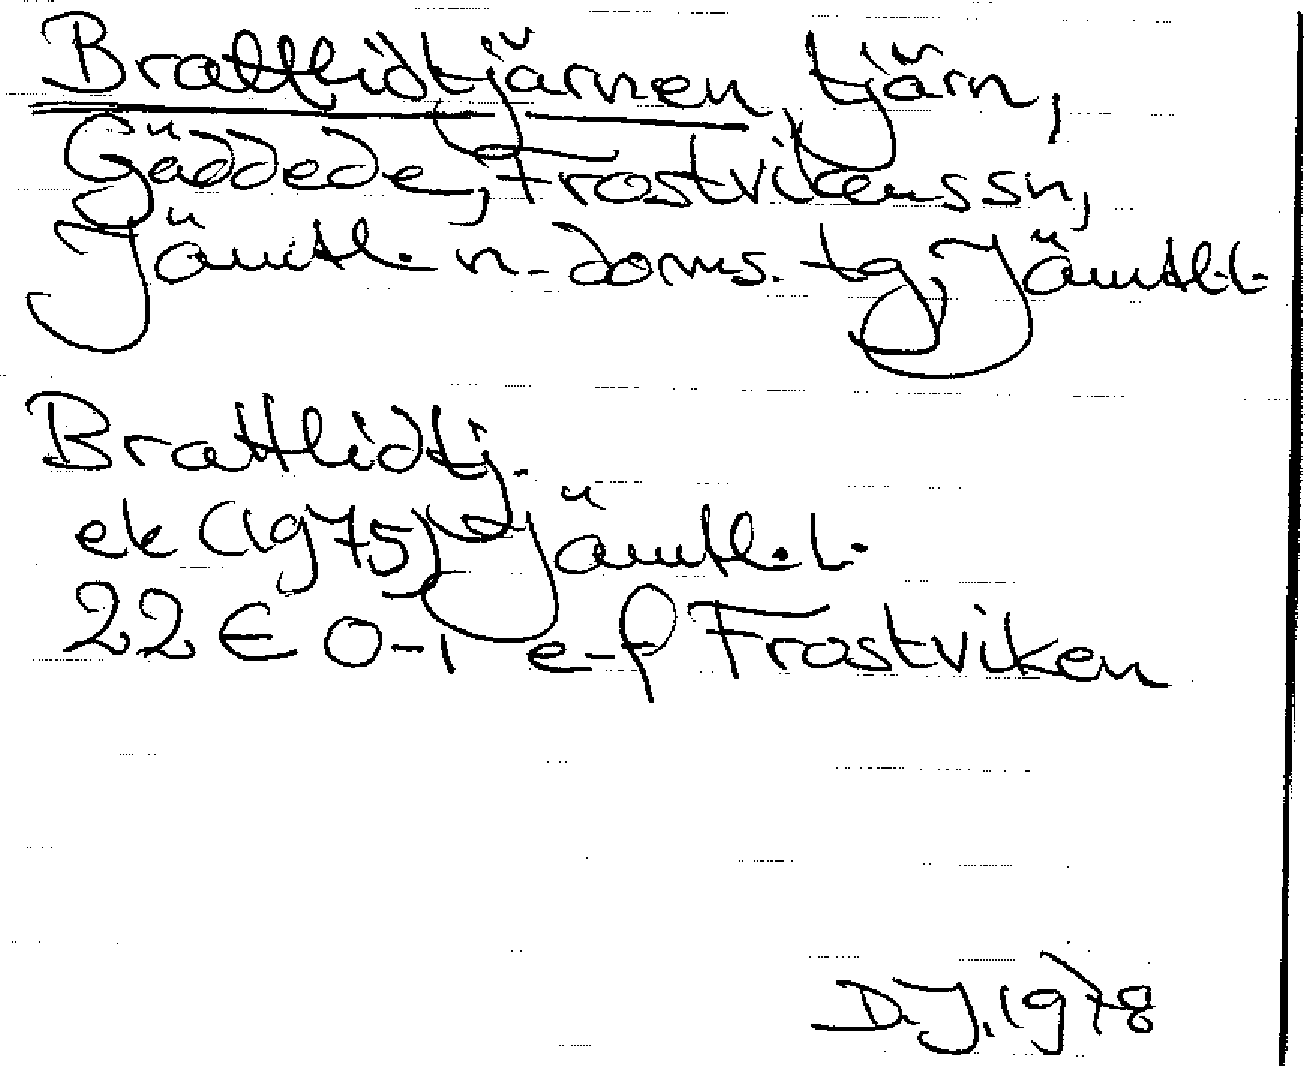 Brattlidtjärnen, tjärn,
Gäddede, Frostvikens sn,
Jämtl. n. doms. tg, Jämtl. l.
Brattlidtj.
ek (1975) Jämtl. l.
22 E 0-1 e-f Frostviken
D.J. 1978